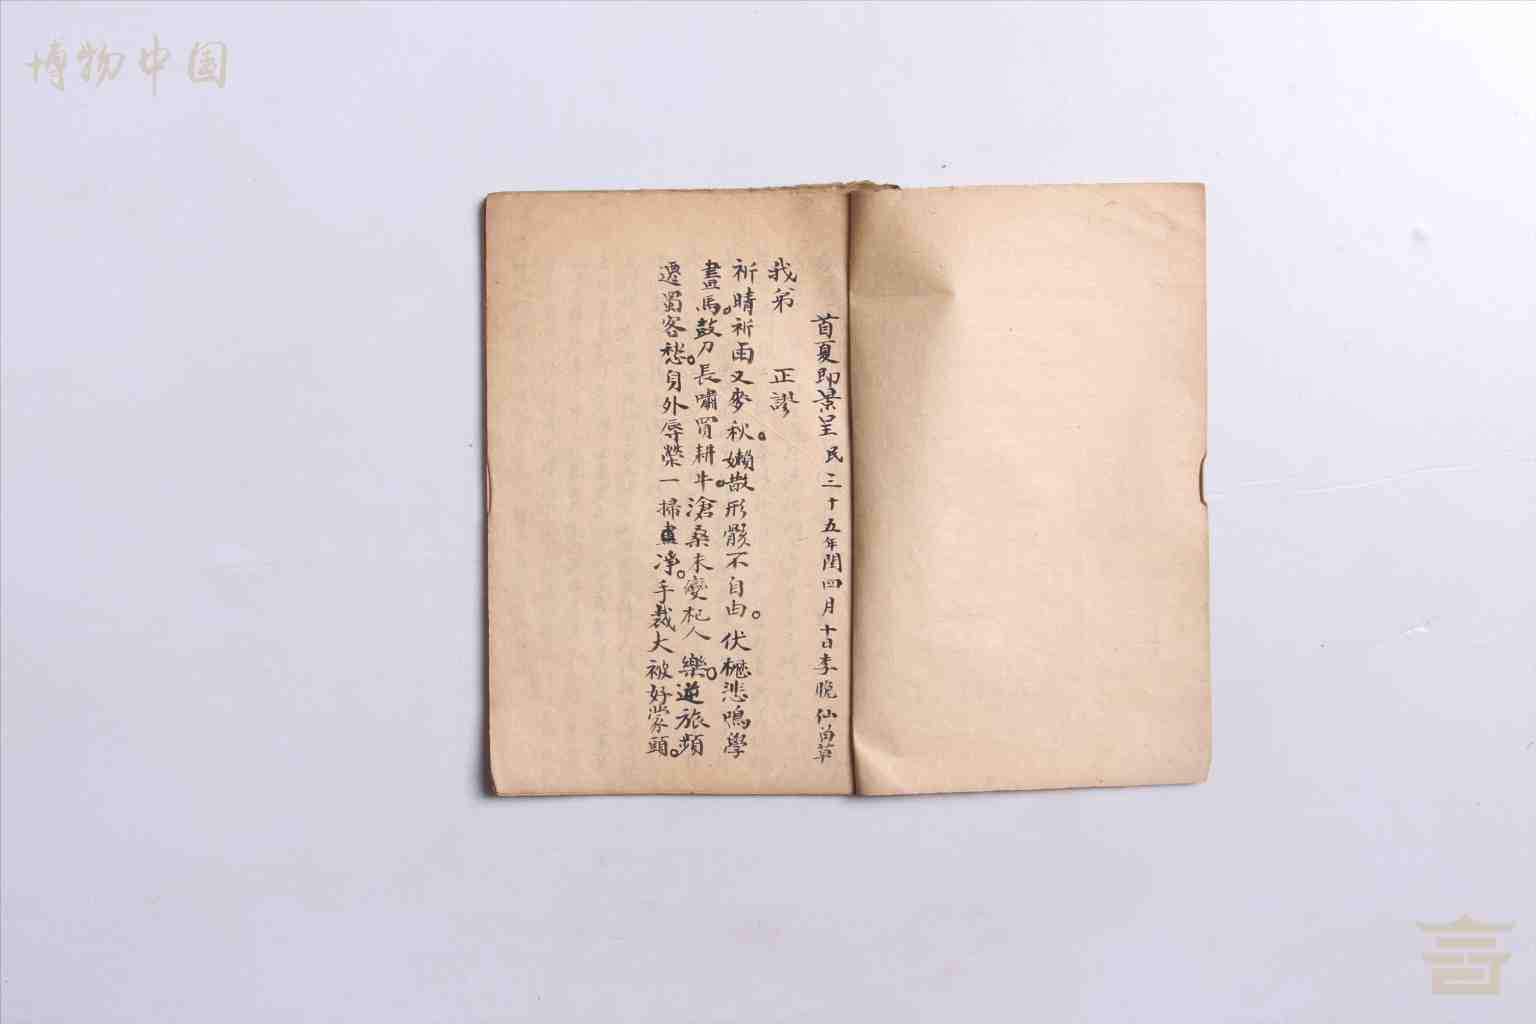 博物中国
首夏即景呈 民三十五年閏四月十日李晚仙
我弟 正謬
祈晴祈雨又麥秋。嬾散形骸不自由。伏櫪悲鳴學
畫馬。鼓刀長嘯買耕牛。滄桑未變杞人樂。逆旅頻
遷蜀客愁。身外辱榮一掃凈。手裁大被好蒙頭。